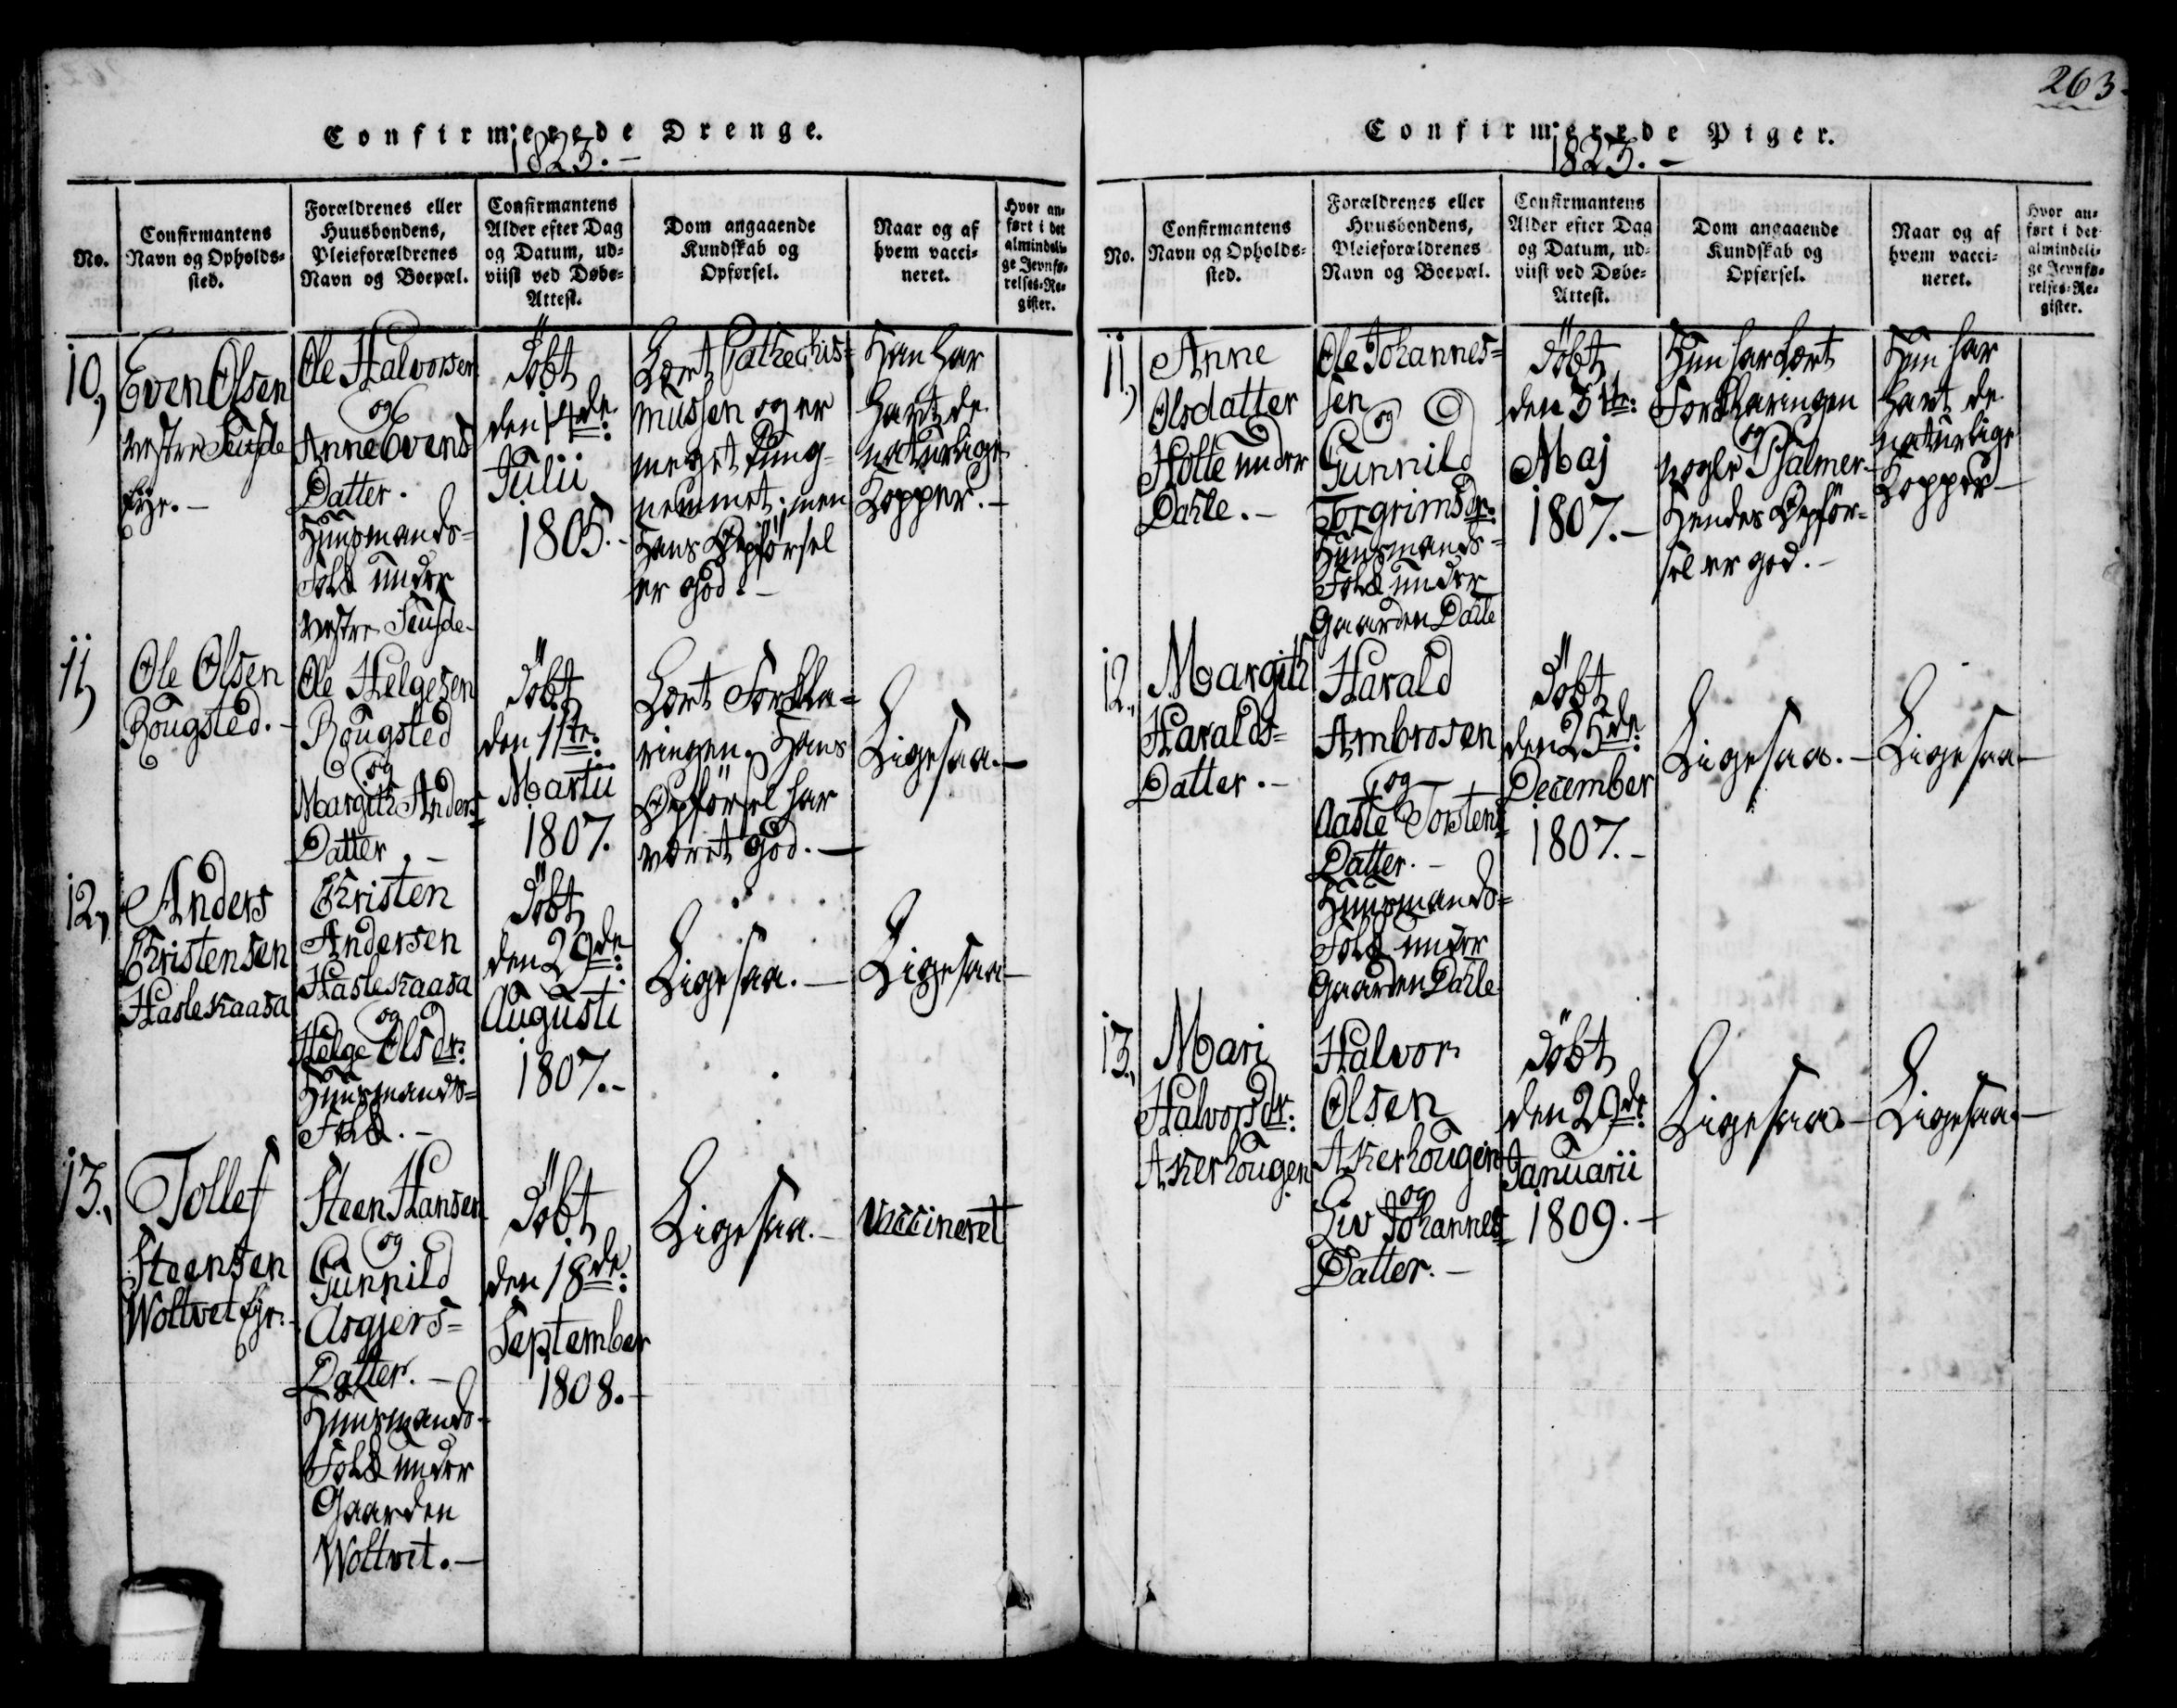 263.
Confirmerede Drenge.
1823.-
No.
Confirmantens
Navn og Opholds-
sted.
Forældrenes eller
Huusbondens,
Pleieforældrenes
Navn og Boepæl.
Confirmantens
Alder efter Dag
og Datum, ud-
viist ved Døbe-
Attest.
Dom angaaende
Kundskab og
Opførsel.
Naar og af
hvem vacci-
neret.
Hvor an-
ført i det
almindeli-
ge Jevnfø-
relses-Re-
gister.
10,
Even Olsen
vestre

Ole Halvorsen
og
Anne Evens
Datter.
Huusmands-
Folk under
vestre
Döbt
den 14de:
Julii
1805.-
Lært Cathechis-
mussen og er
meget tung-
nemmet; men
Hans Opförsel
er god.-
Han har
havt de
naturlige
Kopper.-
11,
Ole Olsen
Rougsted.-
Ole Helgesen
Rougsted
og
Margith Anders-
Datter.-
Döbt
den 11te:
Martii
1807.
Lært Forkla-
ringen. Hans
Opförsel har
været god.-
Ligesaa.-
12,
Anders
Kristensen
Haslekaasa
Kristen
Andersen
Haslekaasa
og
Helge Olsdr:
Huusmands-
Folk.-
Döbt
den 29de:
Augusti
1807.-
Ligesaa.-
Ligesaa-
13.,
Tollef
Steensen
Woltvet Eje.-
Steen Hansen
og
Gunnild
Asgjers-
Datter.-
Huusmands-
Folk under
Gaarden
Woltvet.-
Döbt
den 18de:
September
1808.-
Ligesaa.-
Vaccineret
Confirmerede Piger.
1823.-
No.
Confirmantens
Navn og Opholds-
sted.
Forældrenes eller
Huusbondens,
Pleieforældrenes
Navn og Boepæl.
Confirmantens
Alder efter Dag
og Datum, ud-
viist ved Døbe-
Attest.
Dom angaaende
Kundskab og
Opførsel.
Naar og af
hvem vacci-
neret.
Hvor an-
ført i det
almindeli-
ge Jevnfø-
relses-Re-
gister.
11.,
Anne
Olsdatter
Holte under
Dahle.-
Ole Johannes-
sen
og
Gunnild
Torgrimsdr:
Huusmands-
Folk under
Gaarden Dahle
Döbt
den 3die:
Maj
1807.-
Hun har lært
Forklaringen
og
nogle Psalmer.
Hendes Opför-
sel er god.-
Hun har
havt de
naturlige
Kopper-
12.,
Margith
Haralds-
Datter.-
Harald
Ambrosen
og
Aaste Torstens-
Datter.-
Huusmands-
Folk under
Gaarden Dahle
Döbt
den 25de:
December
1807.-
Ligesaa.-
Ligesaa-
13.,
Mari
Halvorsdr:
Akerhougen
Halvor
Olsen
Akerhougen
og
Liv Johannes-
Datter.-
Döbt
den 29de:
Januarii
1809.-
Ligesaa.-
Ligesaa-